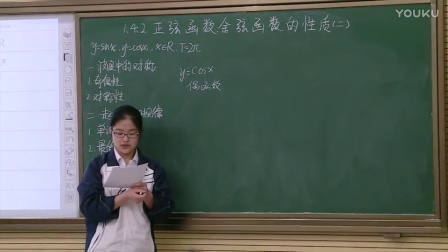 YOUKU
1.4.2 正弦函数余弦函数的性质(二)
y=sinx, y=cosx, x∈R, T=2π
一
中的对称
1.奇偶性
2.对称性
二
1.单
2.最
y=cosx
偶函数